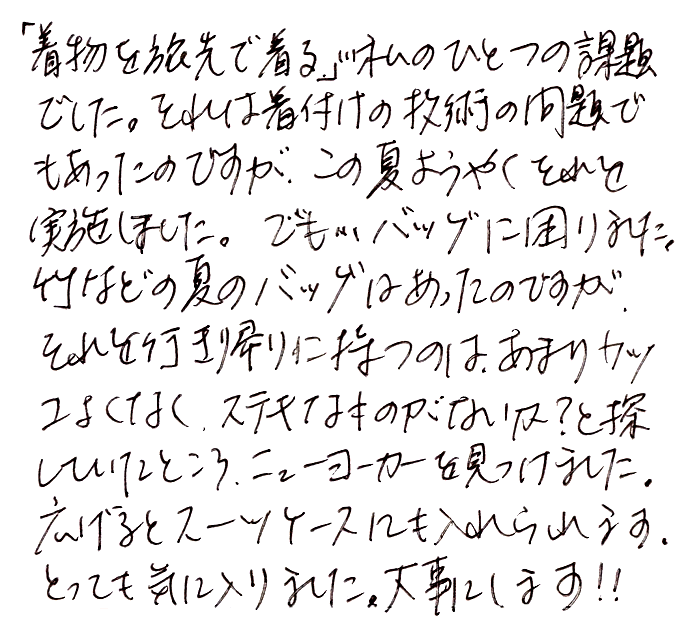 「着物を旅先で着る。」…私のひとつの課題
でした。それは着付けの技術の問題で
もあったのですが、この夏ようやくそれを
実施しました。でも…バッグに困りました。
竹などの夏のバッグはあったのですが、
それを行き帰りに持つのは、あまりカッ
コよくなく、ステキなものがないか?と探
していたところ、ニューヨーカーを見つけました。
広げるとスーツケースにも入れられます。
とっても気に入りました。大事にします!!